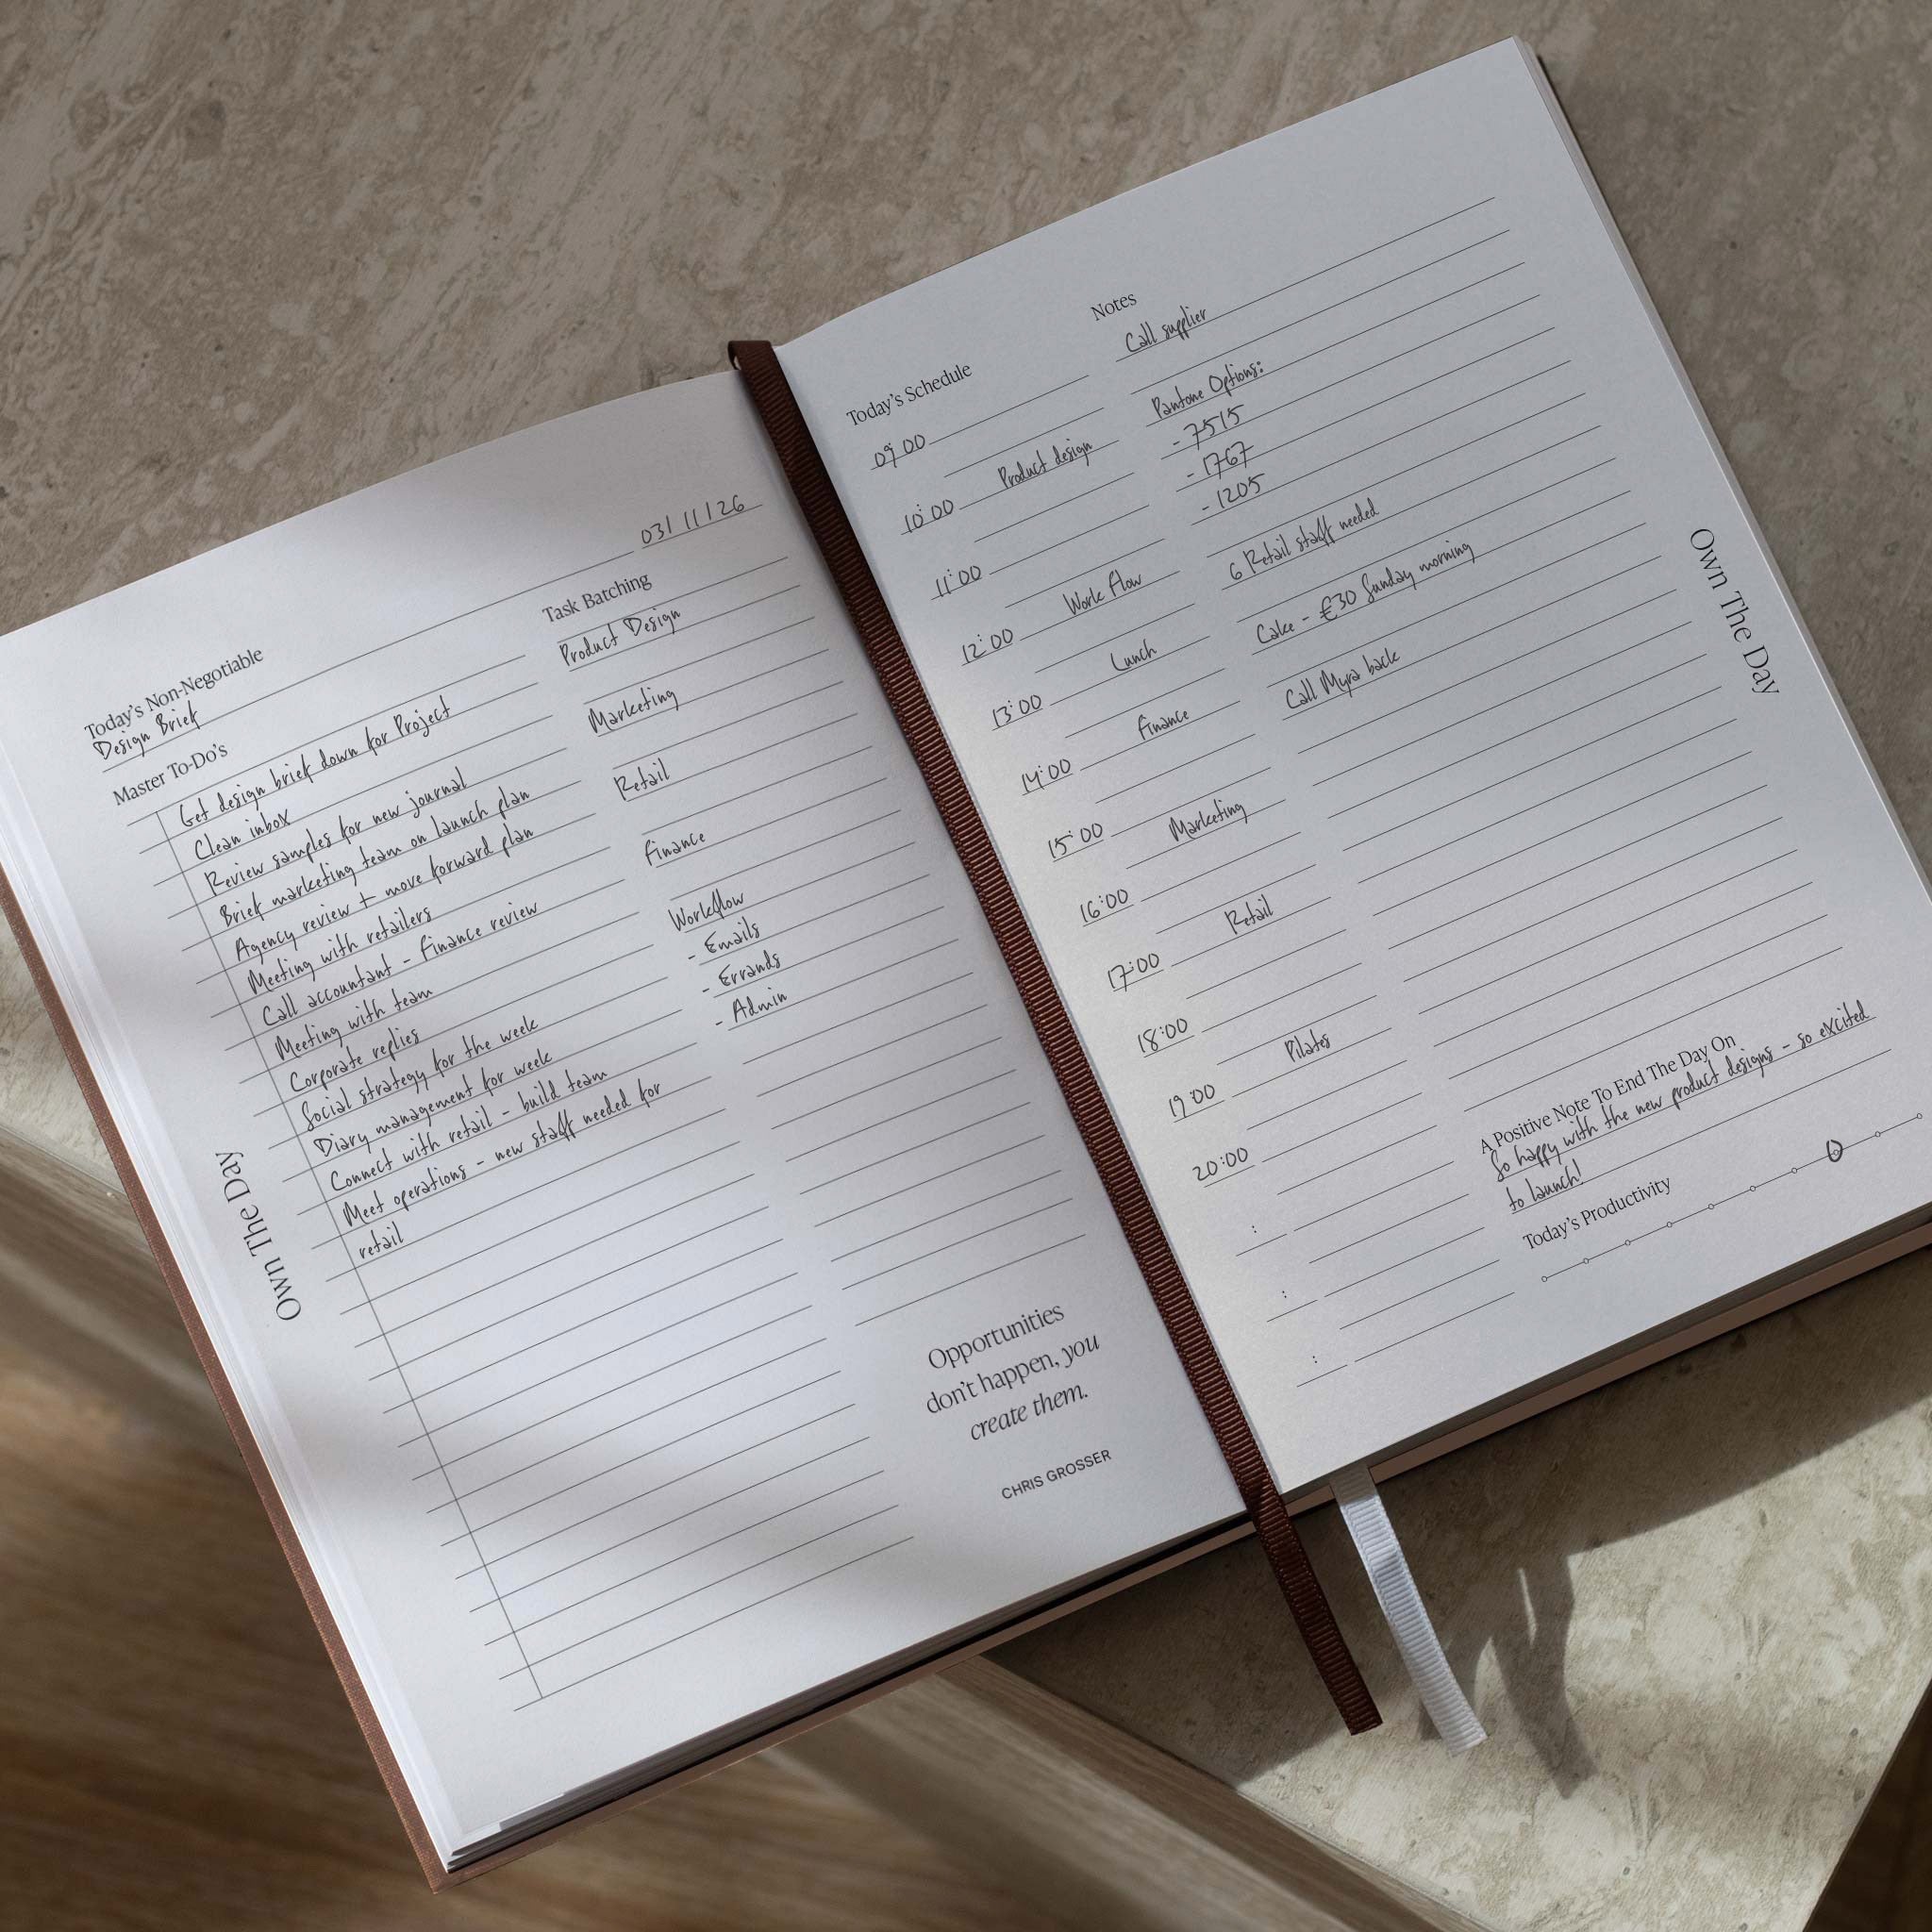 03/11/26
Today's Non-Negotiable
Design Brief
Master To-Do's
Get design brief down for Project
Clean inbox
Review samples for new journal
Brief marketing team on launch plan
Agency review + move forward plan
Meeting with retailers
Call accountant - Finance review
Meeting with team
Corporate replies
Social strategy for the week
Diary management for week
Connect with retail - build team
Meet operations - new staff needed for
retail
Task Batching
Product Design
Marketing
Retail
Finance
Workflow
- Emails
- Errands
- Admin
Own The Day
Opportunities
don't happen, you
create them.
CHRIS GROSSER
Today's Schedule
09:00
Product design
10:00
11:00
Work Flow
12:00
Lunch
13:00
Finance
14:00
15:00
Marketing
16:00
Retail
17:00
18:00
Pilates
19:00
20:00
:
:
:
Notes
Call supplier
Pantone Options:
- 7515
- 1767
- 1205
6 Retail staff needed
Cake - €30 Sunday morning
Call Myra back
Own The Day
A Positive Note To End The Day On
So happy with the new product designs - so excited
to launch!
Today's Productivity